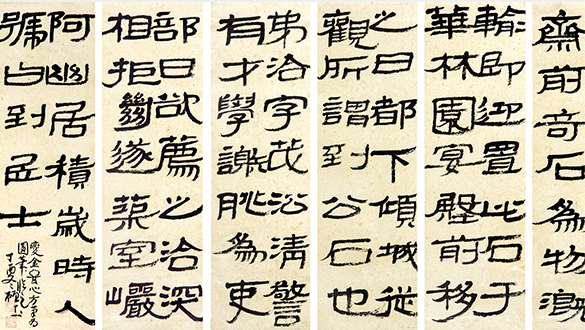 齋前奇石為物溉
輸即迎置此石于
華林園宴殿前移
之日都下傾城從
觀所謂到公石也
弟洽字茂沿清警
有才學謝朓為吏
部日欲薦之洽深
相拒絕遂築室巖
阿幽居積歲時人
號曰到居士